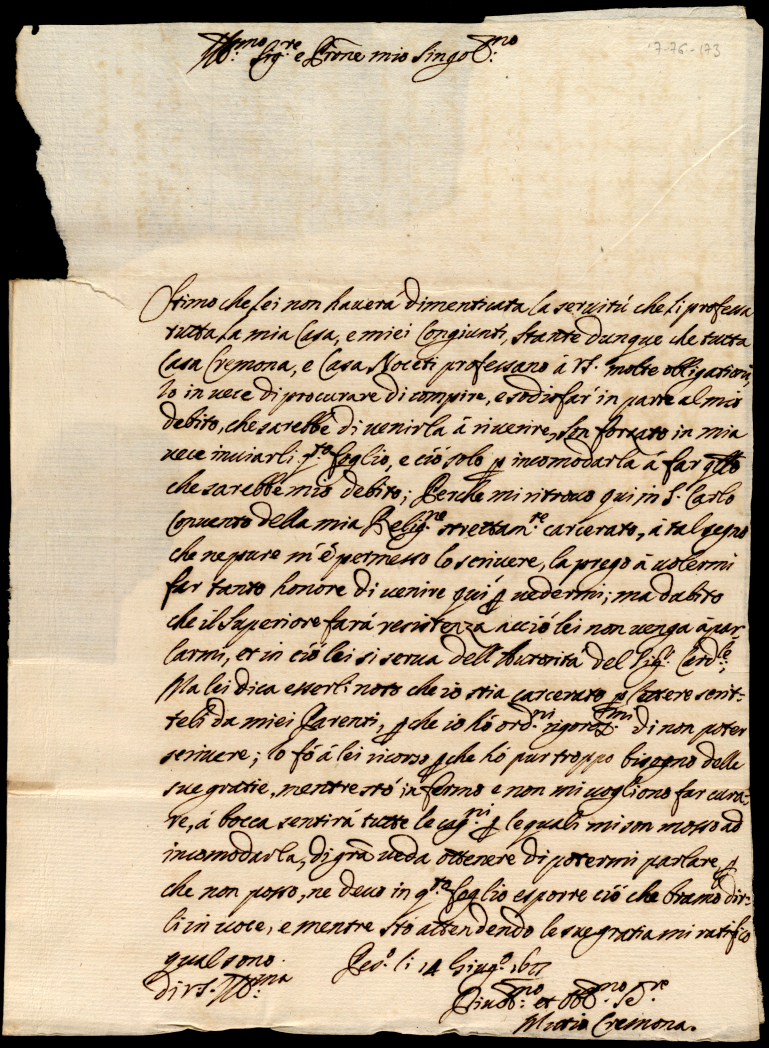 Ill:mo Sig:re e Prone mio Singol:mo
7-76-173
Stimo che Lei non haverá dimenticata la servitú che li professa
tutta la mia Casa, e miei Congiunti, Stante dunque che tutta
Casa Cremona, e Casa Noceti professano á VS. molte obligationi,
Io in vece di procurare di compire, e sodisfar' in parte al mio
debito, che sarebbe di venirla á riverire, son forzato in mia
vece inviarli q.to foglio, e ció solo p incomodarla á far qllo
che sarebbe mio debito; Perche mi ritrovo qui in S. Carlo
Convento della mia Relig:ne strettam:te carcerato, á tal segno
che ne pure m'é permesso lo scrivere, la prego á volermi
far tanto honore di venire quí p vedermi; ma dubito
che il Superiore fará resistenza acció lei non venga á par-
larmi, et in ció lei si serva dell'Autoritá del Sig:r Card:le;
Ma lei dica esserli noto che io stia carcerato p lettere scrit-
teli da miei Parenti, pche io hó ord:ni rigoros:mi di non poter
scrivere; Io fó á lei ricorso pche hó pur troppo bisogno delle
sue gratie, mentre stó infermo e non mi vogliono far cura-
re, á bocca sentirá tutte le cag:ni p le quali mi son mosso ad
incomodarla, di gra veda ottenere di potermi parlare, p
che non posso, ne devo in q.to foglio esporre ció che bramo dir-
li in voce, e mentre stó attendendo le sue gratia mi ratifico
qual sono.
Pes:o li 14 Giug:o 1677
di VS. Ill:ma
Div:mo et Obl:mo Se:re
Mutio Cremona.